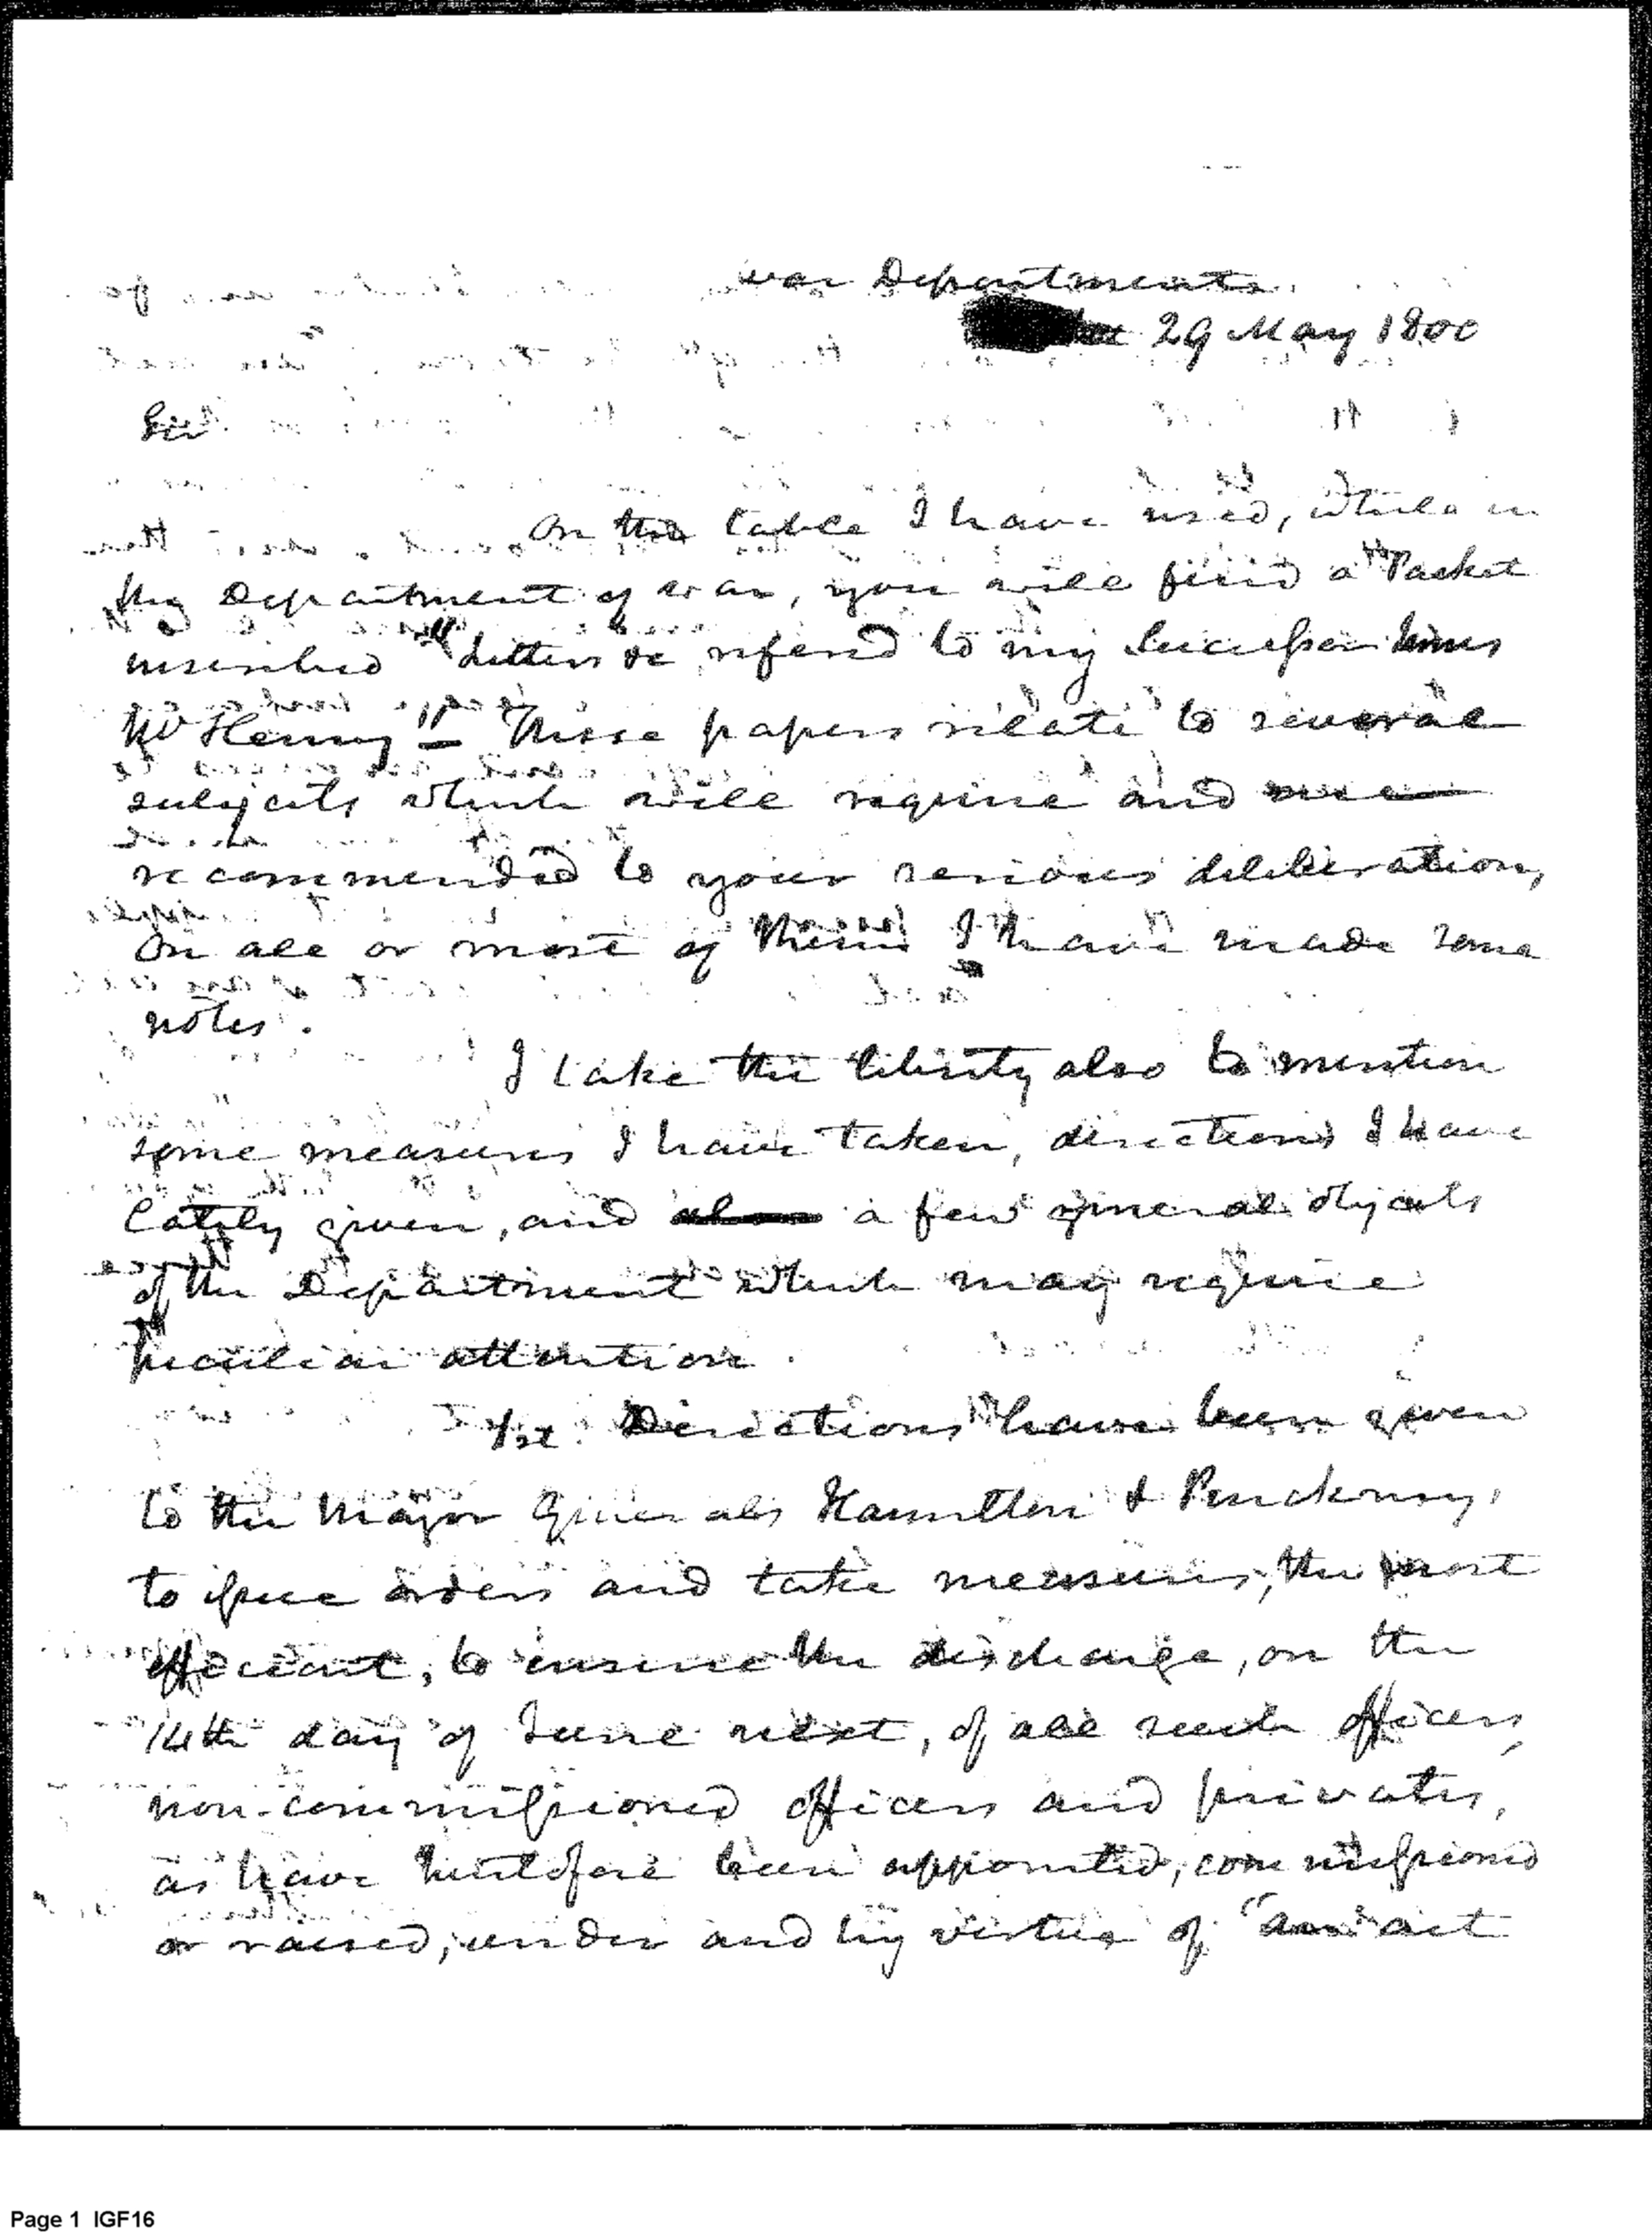 War Department.
29 May 1800
Sir
On the table I have used, while in
the Department of war, you will find a Packet
inscribed "Letters &c referred to my Successor James
McHenry" – These papers relate to several
subjects which will require and are
recommended to your serious deliberation,
On all or most of them I have made some
notes.
I take the liberty also to mention
some measures I have taken, directions I have
lately given, and a few general objects
of the Department which may require
peculiar attention.
1st. Directions have been given
to the Major Generals Hamilton & Pinckney,
to issue orders and take measures, the most
efficient, to ensure the discharge, on the
14th day of June next, of all such officers,
non-commissioned officers and privates,
as have heretofore been appointed, commissioned
or raised, under and by virtue of "an act
Page 1 IGF16